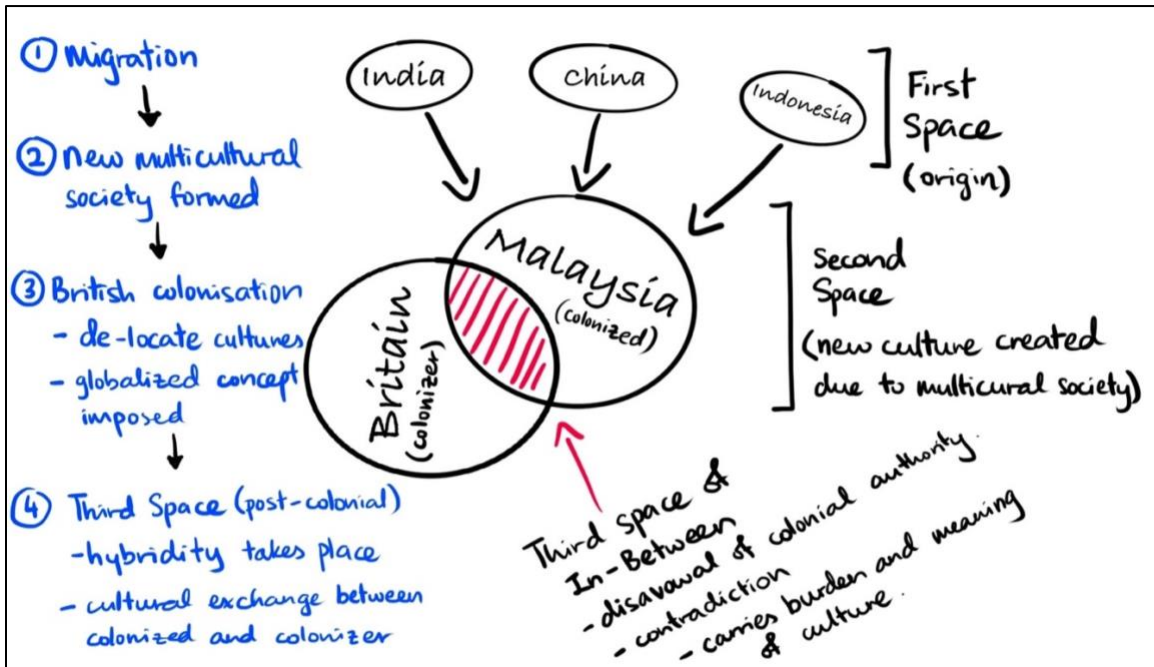 ① Migration
② New multicultural
society formed
③ British colonisation
- de-locate cultures
- globalized concept
imposed
④ Third Space (post-colonial)
- hybridity takes place
- cultural exchange between
colonized and colonizer
India
China
Indonesia
First
Space
(origin)
Malaysia
(colonized)
Britain
(colonizer)
Second
Space
(new culture created
due to multicural society)
Third space &
In-Between
- disavowal of colonial authority.
- contradiction
- carries burden and meaning
of culture.